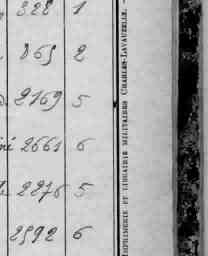 328 1
865 2
2169 5
né 2661 6
2276 5
2592 6
IMPRIMERIE ET LIBRAIRIE MILITAIRES CHARLES-LAVAUZELLE. —